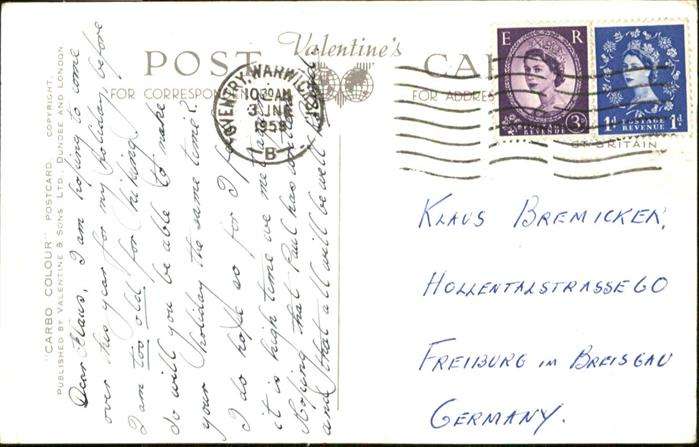 "CARBO COLOUR" POSTCARD. COPYRIGHT.
PUBLISHED BY VALENTINE & SONS LTD., DUNDEE AND LONDON
POST CARD
Valentine's
FOR CORRESPONDENCE
FOR ADDRESS
OF BRITAIN
COVENTRY WARWICK
10 AM
3 JNE
1958
B
E R
POSTAGE REVENUE 3D
1D POSTAGE REVENUE 1D
Dear Klaus, I am hoping to come
over this year for my holiday, before
I am too old for hiking!
So will you be able to make
your holiday the same time?
I do hope so for I
it is high time we met
Hoping that Paul has
and that all will be well
KLAUS BREMICKER,
HOLLENTALSTRASSE 60
FREIBURG IM BREISGAU
GERMANY.